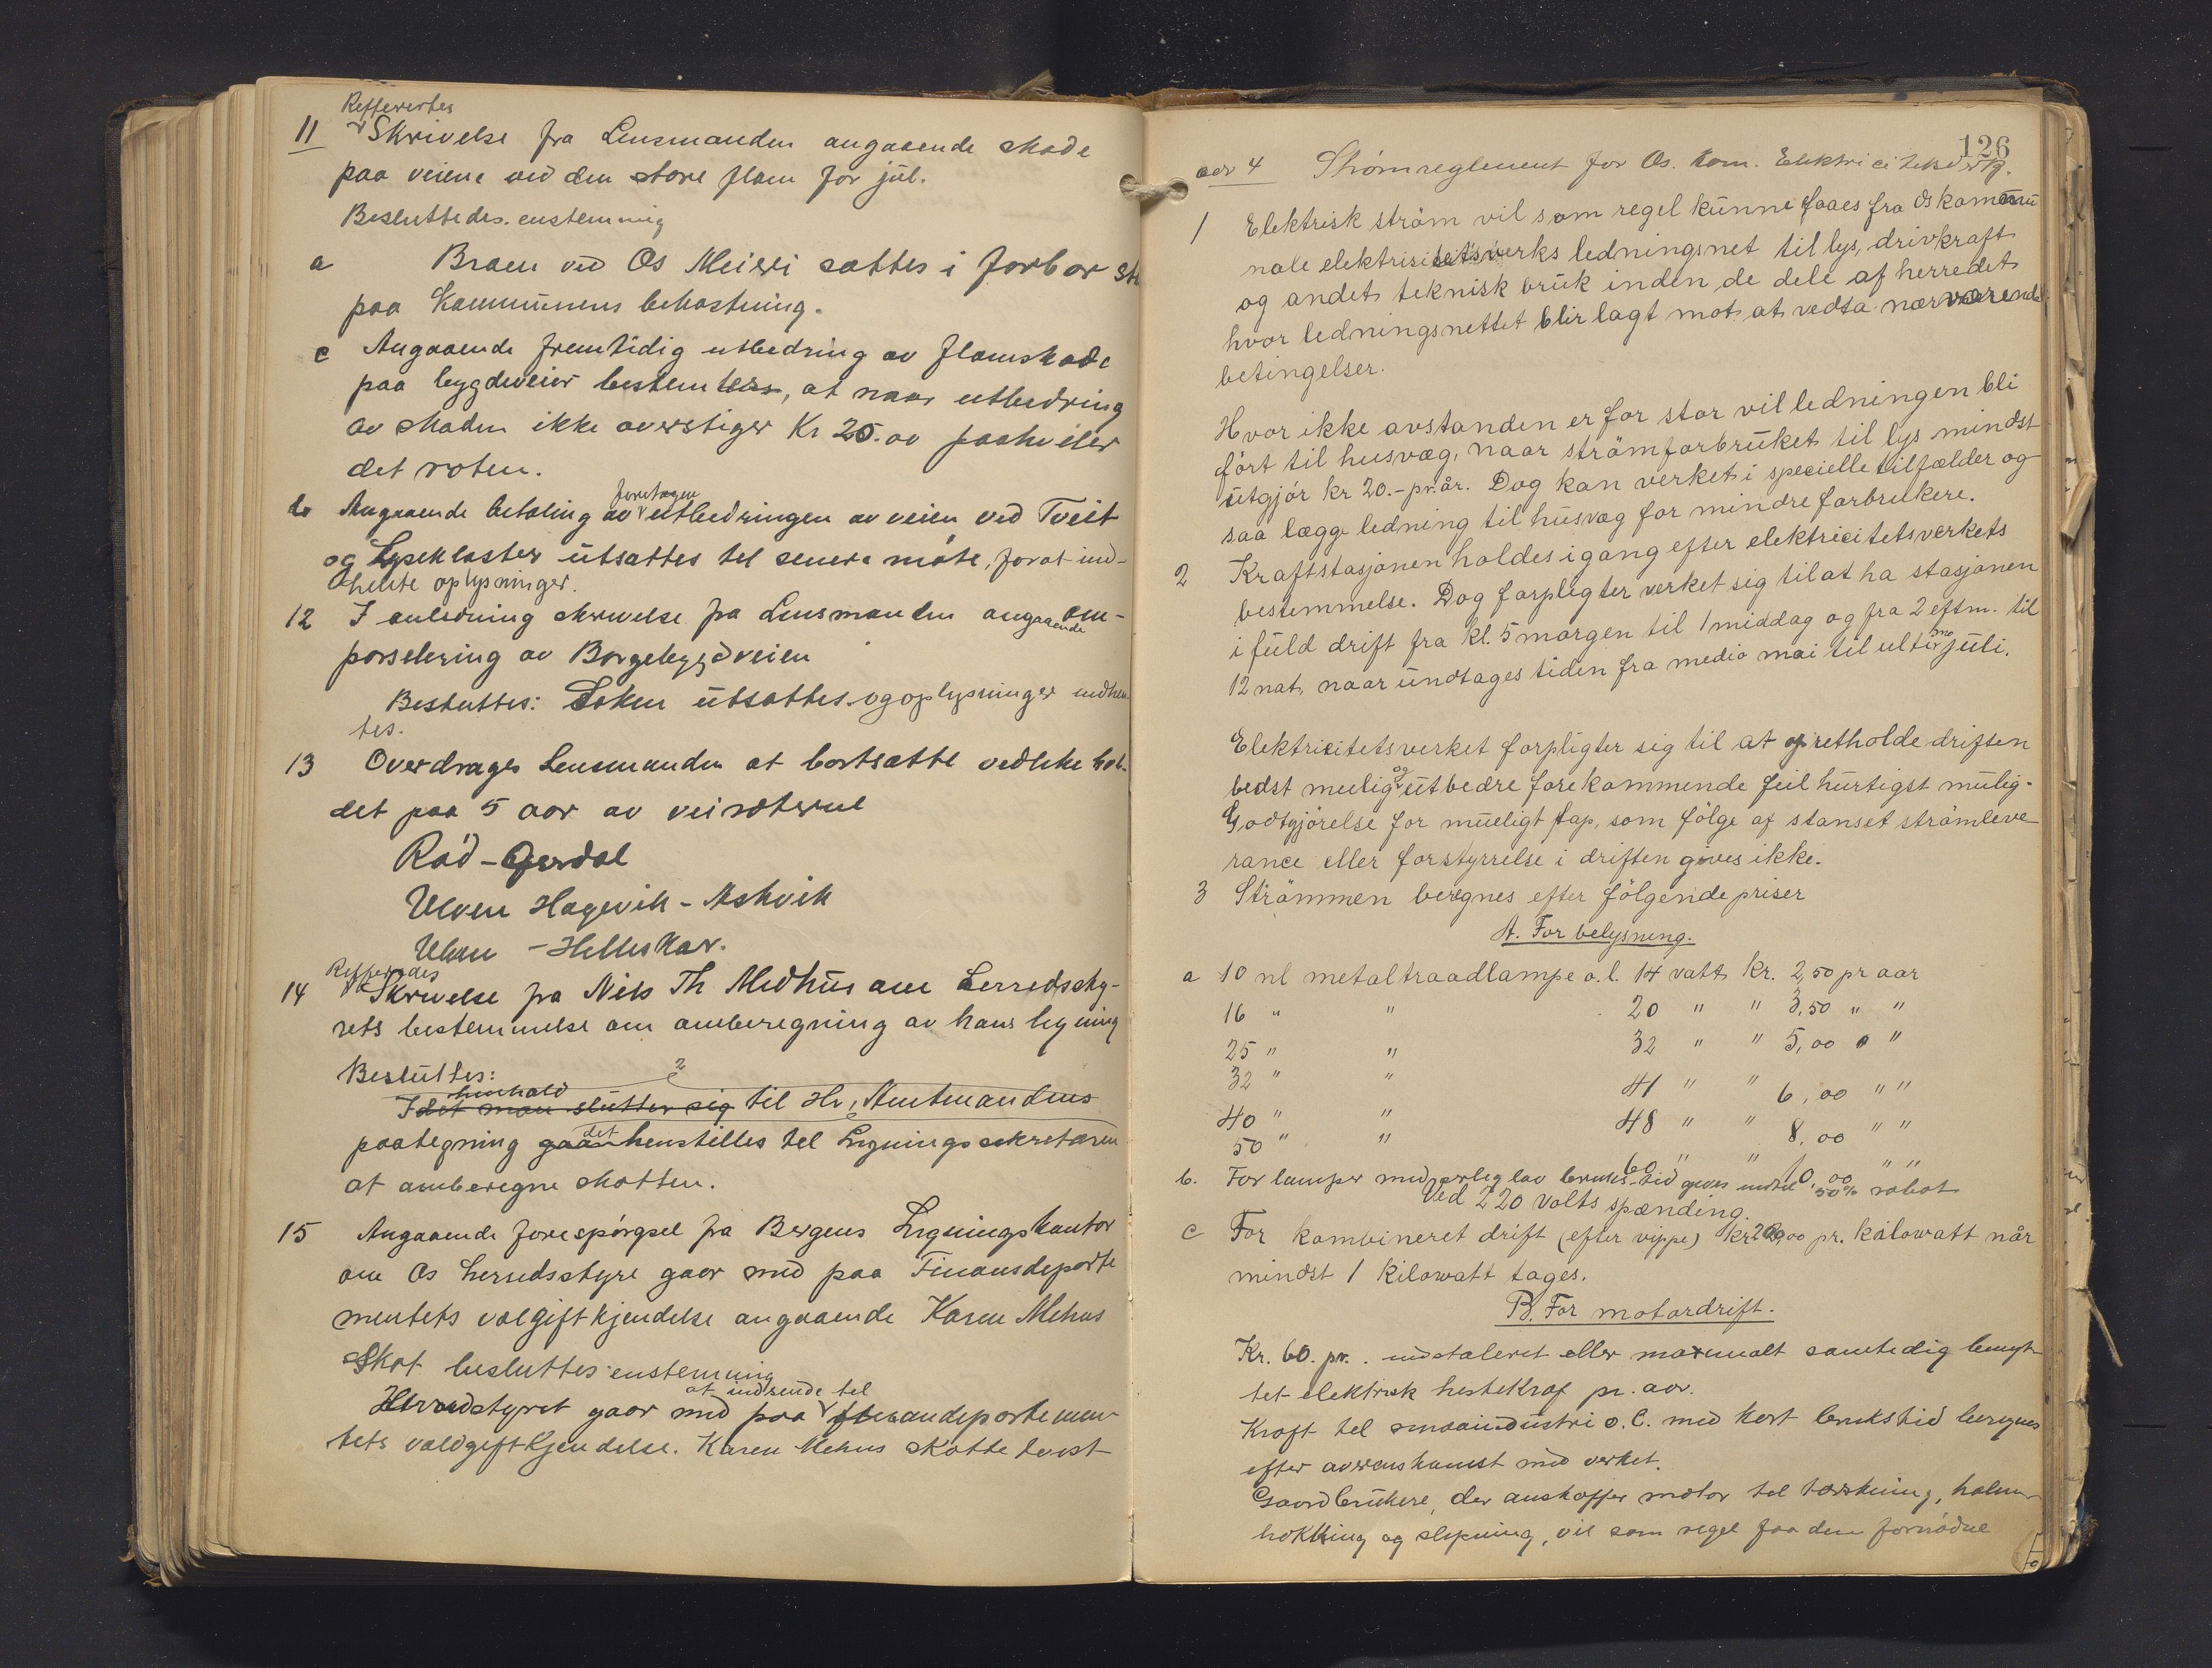 Refferertes
11 Skrivelse fra Lensmanden angaaende skade
paa veiene ved den store flom før jul.
Besluttedes enstemmig
a Broen ved Os Meieri sættes i forbor St
paa Kommunens bekostning.
c Angaaende fremtidig utbedring av flomskade
paa bygdeveier bestemtes, at naar utbedring
av skaden ikke overstiger Kr 25.00 paahviler
det roten.
b Angaaende betaling av foretagen utbedringen av veien ved Tveit
og Lysekloster utsættes til senere møte, for at ind-
hente oplysninger.
12 I anledning skrivelse fra Lensmanden angaaende om-
porselering av Borgebygdveien
Besluttes: Saken utsættes og oplysninger indhen-
tes.
13 Overdrages Lensmanden at bortsætte vedlikehol-
det paa 5 aar av veiroterne
Rød - Gjerdal
Ulven Hagevik - Askvik
Ulven - Helleskar.
Refferertes
14 Skrivelse fra Nils Th Medhus om Herredssty-
rets bestemmelse om omberegning av hans ligning
Besluttes:
I det man slutter sig henhold til Hr. Amtmandens
paategning gaar det henstilles til Ligningssekretæren
at omberegne skatten.
15 Angaaende forespørgsel fra Bergens Ligningskontor
om Os herredsstyre gaar med paa Finansdeparte
mentets volgiftkjendelse angaaende Karen Mehus
Skat besluttes enstemmig
Herredstyret gaar med paa at indsende til finansdepartemen-
tets voldgiftkjendelse. Karen Mehus skatte tvist
126
aar 4 Strømreglement for Os. kom. Elektricitetsverk.
1 Elektrisk strøm vil som regel kunne faaes fra Os kommu
nale elektricitetsverks ledningsnet til lys, drivkraft
og andet teknisk bruk inden de dele af herredet
hvor ledningsnettet blir lagt mot at vedta nærværende
betingelser.
Hvor ikke avstanden er for stor vil ledningen bli
ført til husvæg, naar strømforbruket til lys mindst
utgjør kr 20.- pr. år. Dog kan verket i specielle tilfælder og
saa lægge ledning til husvæg for mindre forbrukere.
2 Kraftstasjonen holdes i gang efter elektricitetsverkets
bestemmelse. Dog forpligter verket sig til at ha stasjonen
i fuld drift fra kl. 5 morgen til 1 middag og fra 2 eftm. til
12 nat, naar undtages tiden fra medio mai til ultimo juli.
Elektricitetsverket forpligter sig til at opretholde driften
bedst mulig og utbedre forekommende feil hurtigst mulig.
Godtgjørelse for mueligt tap, som følge af stanset strømleve
rance eller forstyrrelse i driften gives ikke.
3 Strømmen beregnes efter følgende priser
A. For belysning.
a 10 nl metaltraadlampe o.l. 14 vatt Kr. 2,50 pr aar
16 " " 20 " " 3,50 " "
25 " " 32 " " 5,00 " "
32 " " 41 " " 6,00 " "
40 " " 48 " " 8,00 " "
50 " " 60 " " 10,00 " "
b. For lamper med særlig lav brukstid gives indtil 50% rabat
Ved 220 volts spænding.
c For kombineret drift (efter vippe) kr 200,00 pr. kilowatt når
mindst 1 kilowatt tages.
B. For motordrift.
Kr. 60. pr. indstaleret eller maximalt samtidig benyt-
tet elektrisk hestekraf pr. aar.
Kraft til smaaindustri o.l. med kort brukstid beregnes
efter overenskomst med verket.
Gaardbrukere, der anskaffer motor til tærskning, halm-
hakking og slipning, vil som regel faa den fornødne